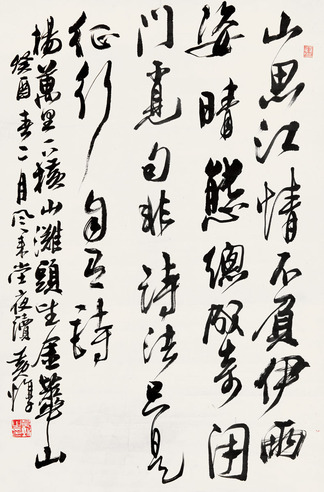 山思江情不負伊雨
姿晴態總成奇閉
門覓句非詩法只是
征行自有詩
楊萬里下橫山灘頭望金華山
癸酉春二月風來堂夜讀黃惇